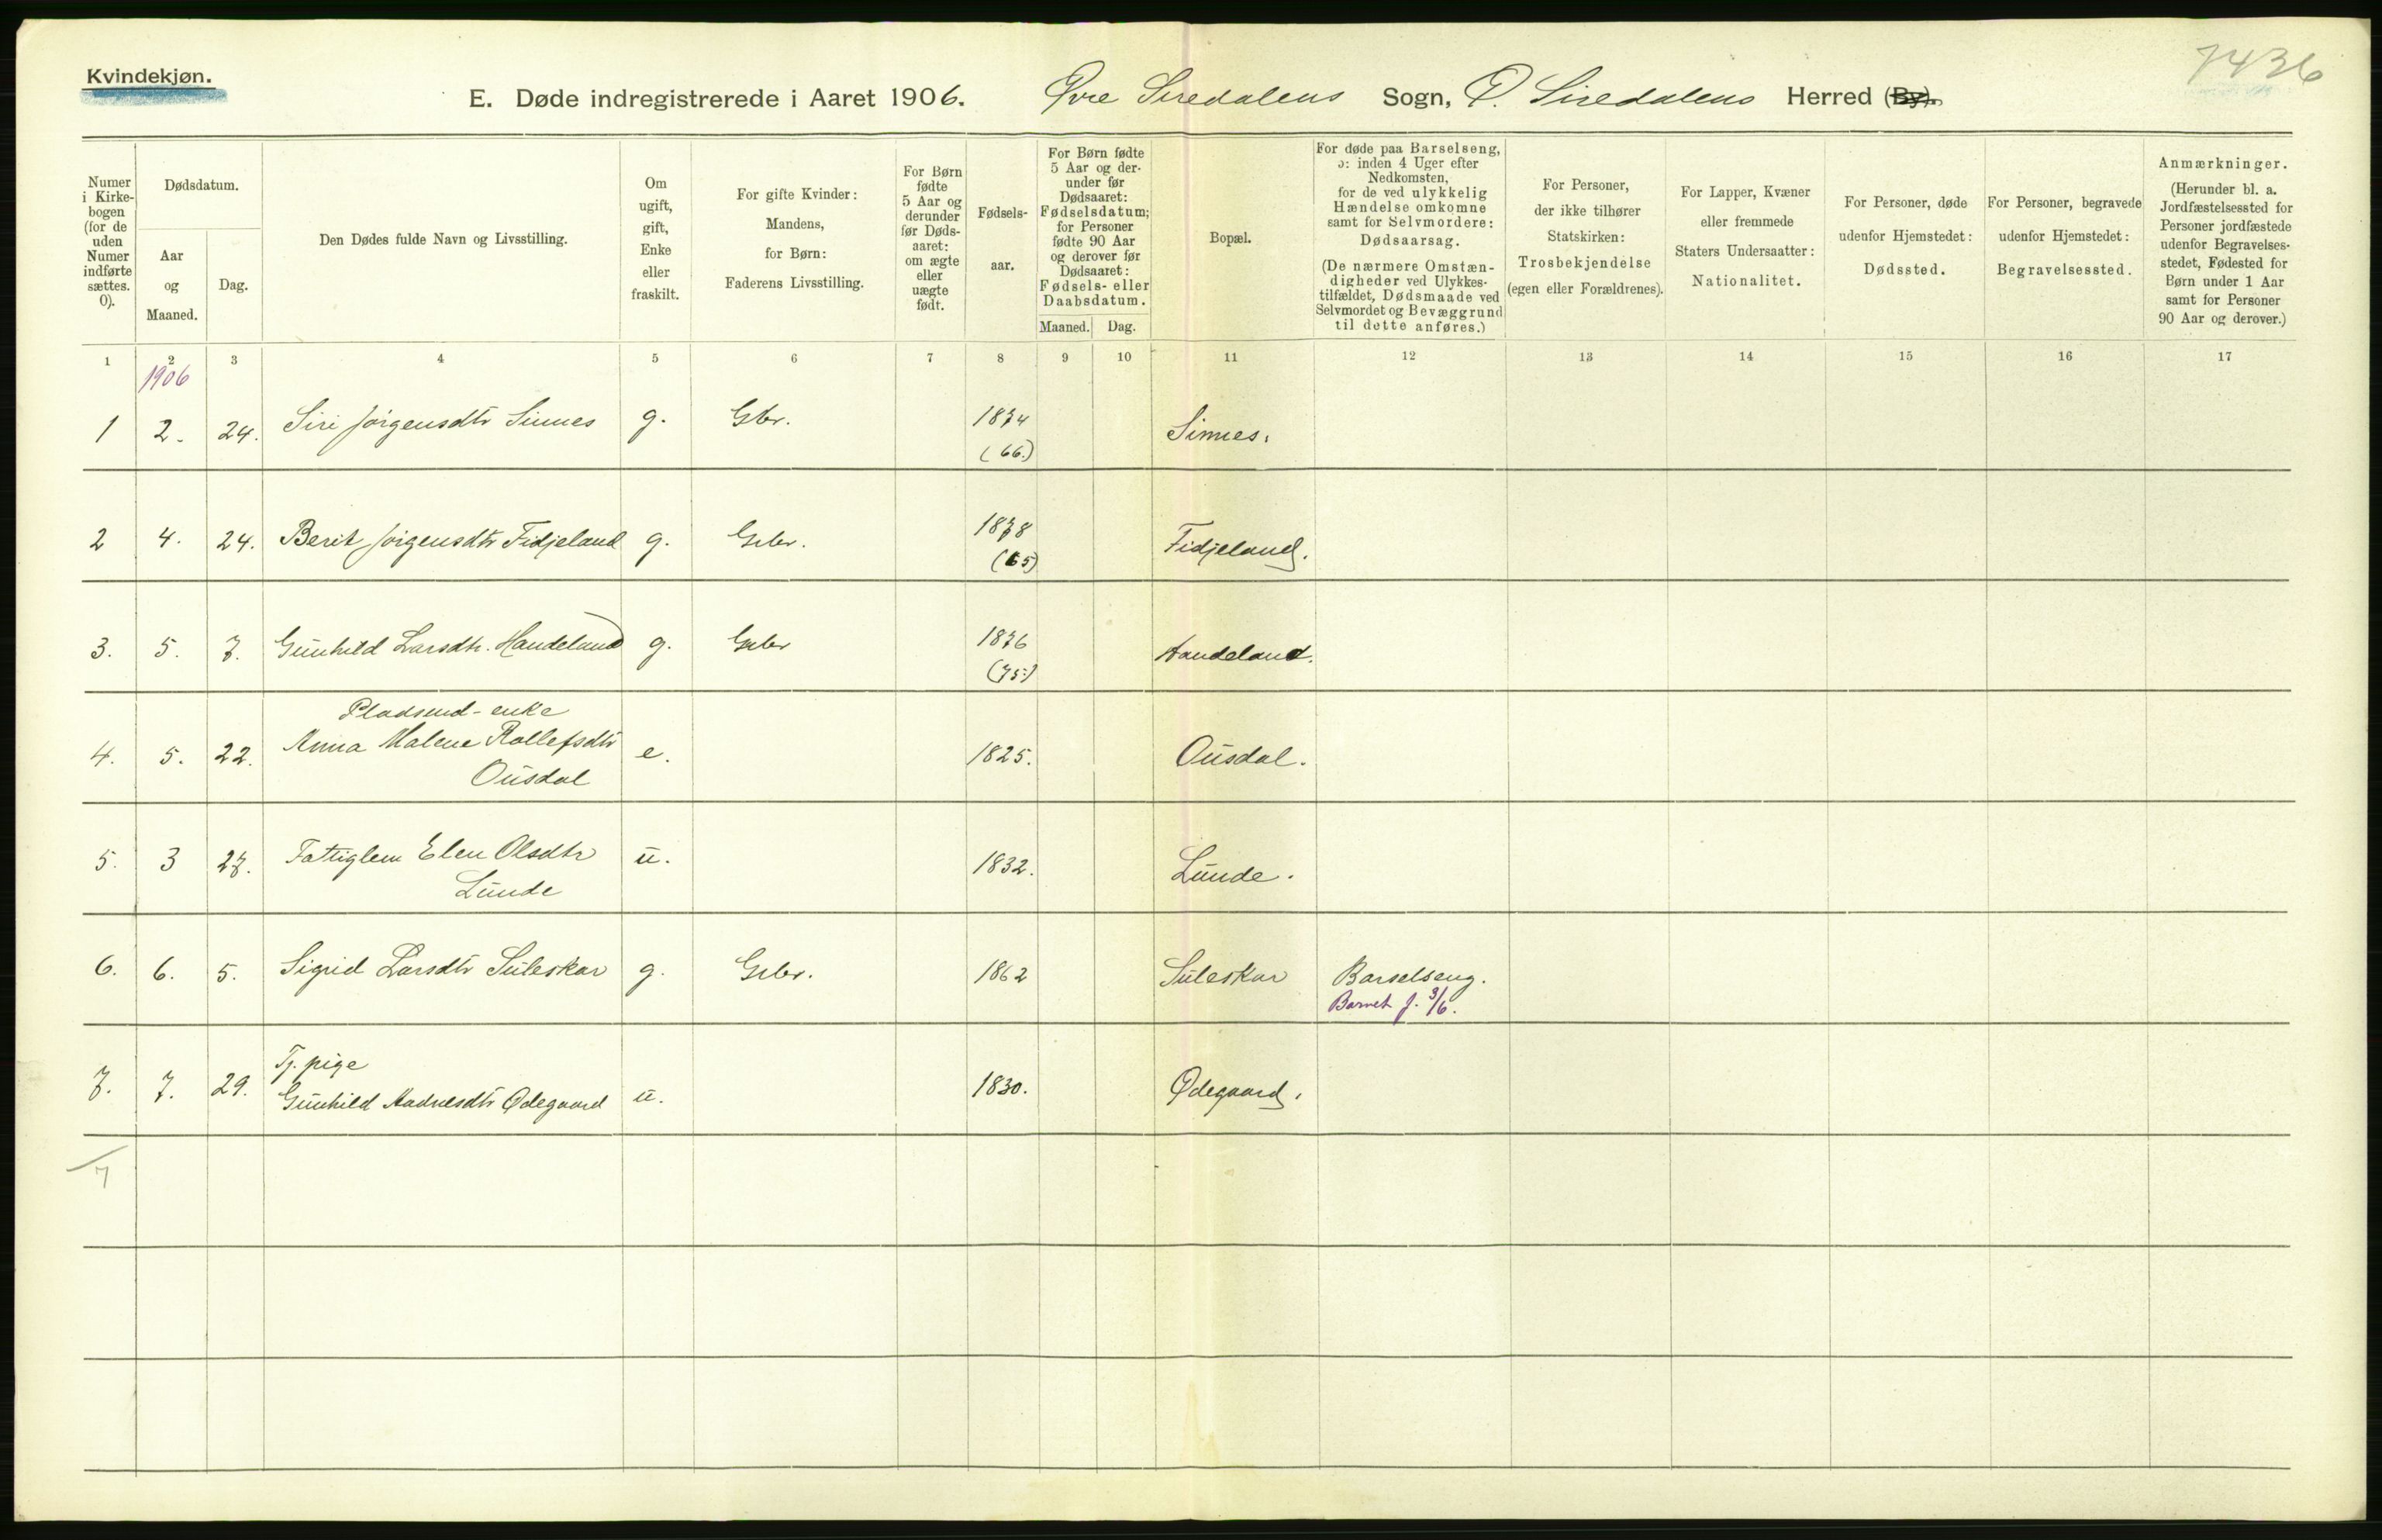 Kvindekjøn.
7436
E. Døde indregistrerede i Aaret 1906. Øvre Siredalens Sogn, Ø. Siredalens Herred (By).
Numer i Kirke-bogen (for de uden Numer indførte sættes. 0).
Dødsdatum.
Aar og Maaned.
Dag.
Den Dødes fulde Navn og Livsstilling.
Om ugift, gift, Enke eller fraskilt.
For gifte Kvinder: Mandens, for Børn: Faderens Livsstilling.
For Børn fødte 5 Aar og derunder før Døds-aaret: om ægte eller uægte født.
Fødsels-aar.
For Børn fødte 5 Aar og der-under før Dødsaaret: Fødselsdatum; for Personer fødte 90 Aar og derover før Dødsaaret: Fødsels- eller Daabsdatum.
Maaned. Dag.
Bopæl.
For døde paa Barselseng, ɔ: inden 4 Uger efter Nedkomsten, for de ved ulykkelig Hændelse omkomne samt for Selvmordere: Dødsaarsag.
(De nærmere Omstæn-digheder ved Ulykkes-tilfældet, Dødsmaade ved Selvmordet og Bevæggrund til dette anføres.)
For Personer, der ikke tilhører Statskirken: Trosbekjendelse (egen eller Forældrenes).
For Lapper, Kvæner eller fremmede Staters Undersaatter: Nationalitet.
For Personer, døde udenfor Hjemstedet: Dødssted.
For Personer, begravede udenfor Hjemstedet: Begravelsessted.
Anmærkninger.
(Herunder bl. a. Jordfæstelsessted for Personer jordfæstede udenfor Begravelses-stedet, Fødested for Børn under 1 Aar samt for Personer 90 Aar og derover.)
1 2 3 4 5 6 7 8 9 10 11 12 13 14 15 16 17
1906
1 2. 24. Siri Jørgensdtr Sinnes g. Gbr. 1874 Sinnes.
(66.)
2 4. 24. Berit Jørgensdtr Fidjeland g. Grbr. 1878 Fidjeland.
(65)
3. 5. 7. Gunhild Larsdtr. Handeland g. Grbr 1876 Handeland.
(75.)
Pladsmd-enke
4. 5. 22. Anna Malene Rollefsdtr e. 1825. Ousdal.
Ousdal
5. 3 27. Fattiglem Elen Olsdtr u. 1832. Lunde.
Lunde
6. 6. 5. Sigrid Larsdtr Suleskar g. Grbr. 1862 Suleskar Barselseng.
Barnet f. 3/6.
Tj. pige
7. 7. 29. Gunhild Aadnesdtr Ødegaard u. 1830. Ødegaard.
7